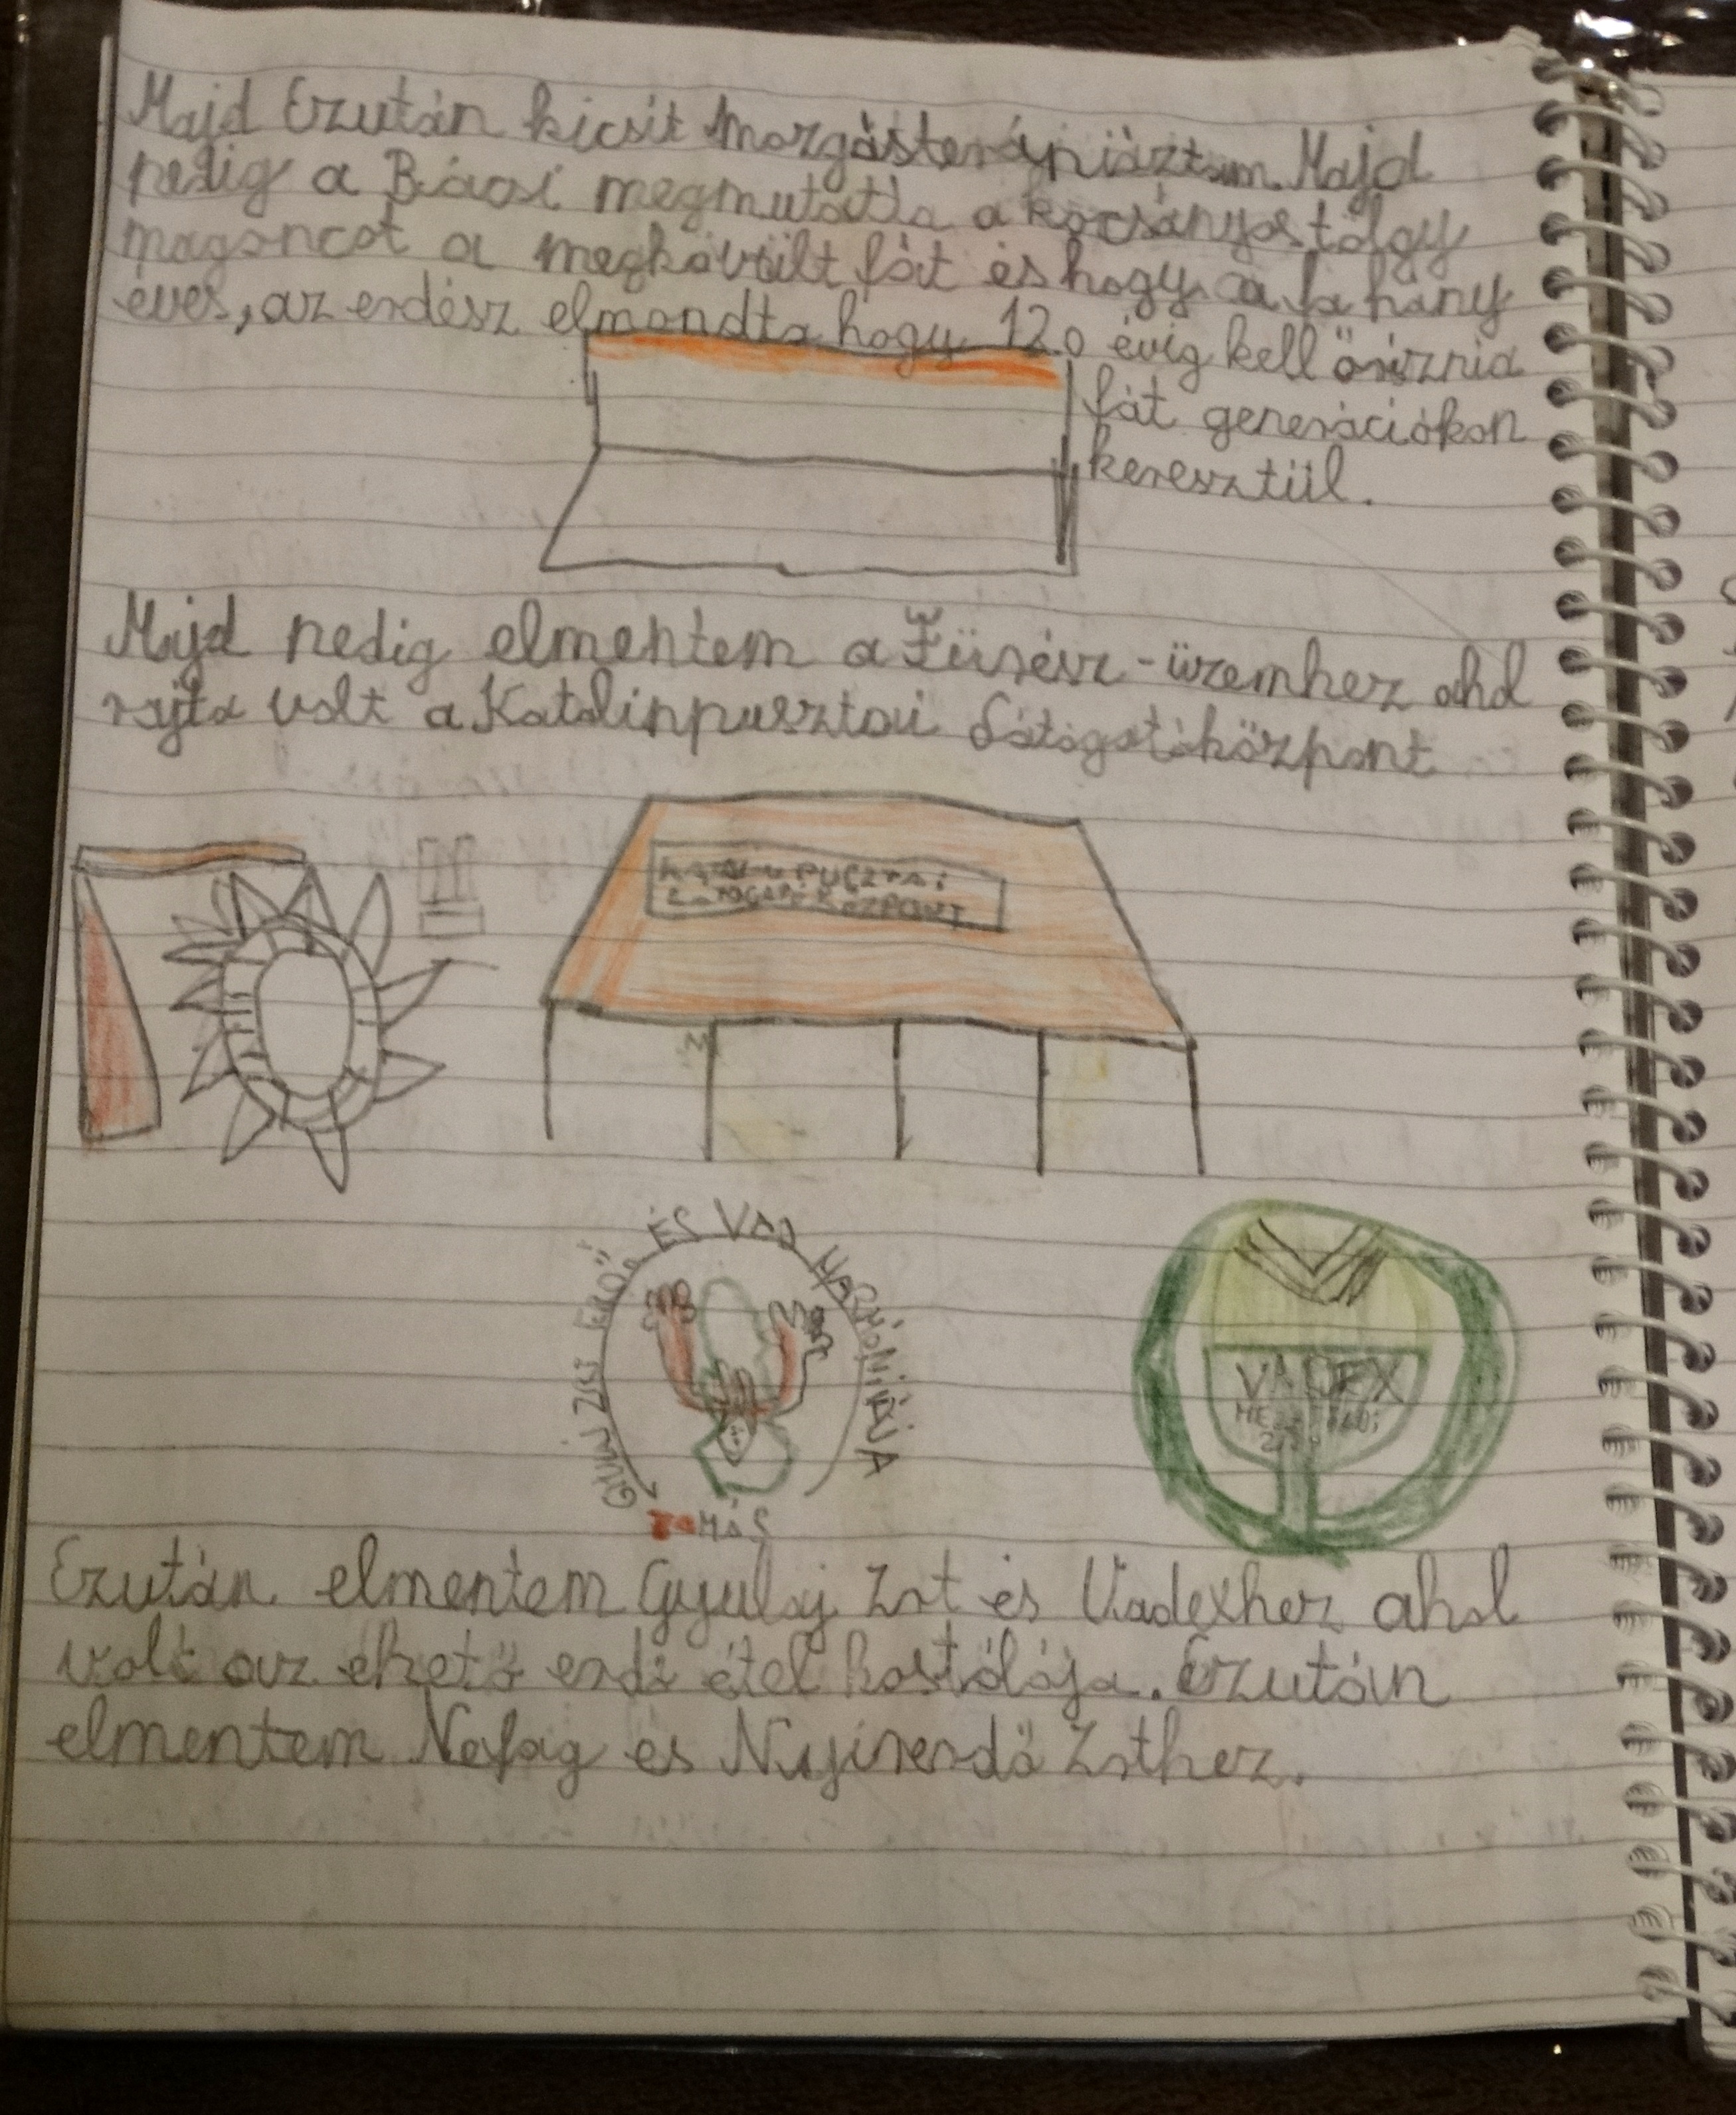 Majd Ezután kicsit mozgásterápiáztam. Majd
pedig a Bácsi megmutatta a kocsányostölgy
magoncot a megkövült fát és hogy a fa hány
éves, az erdész elmondta hogy 120 évig kell őriznia
fát generációkon
keresztül.
Majd pedig elmentem a Fűrész-üzemhez ahol
rajta volt a Katalinpusztai Látogatóközpont
PUSZTAI
LÁTOGATÓKÖZPONT
GYULAJ ZRT ERDŐ ÉS VAD HARMÓNIÁJA
TAMÁSI
VADEX
MEZŐFÖLDI
ZRT.
Ezután elmentem Gyulaj Zrt és Vadexhez ahol
volt az ehető erdő étel kostólója. Ezután
elmentem Nefag és Nyírerdő Zrthez.